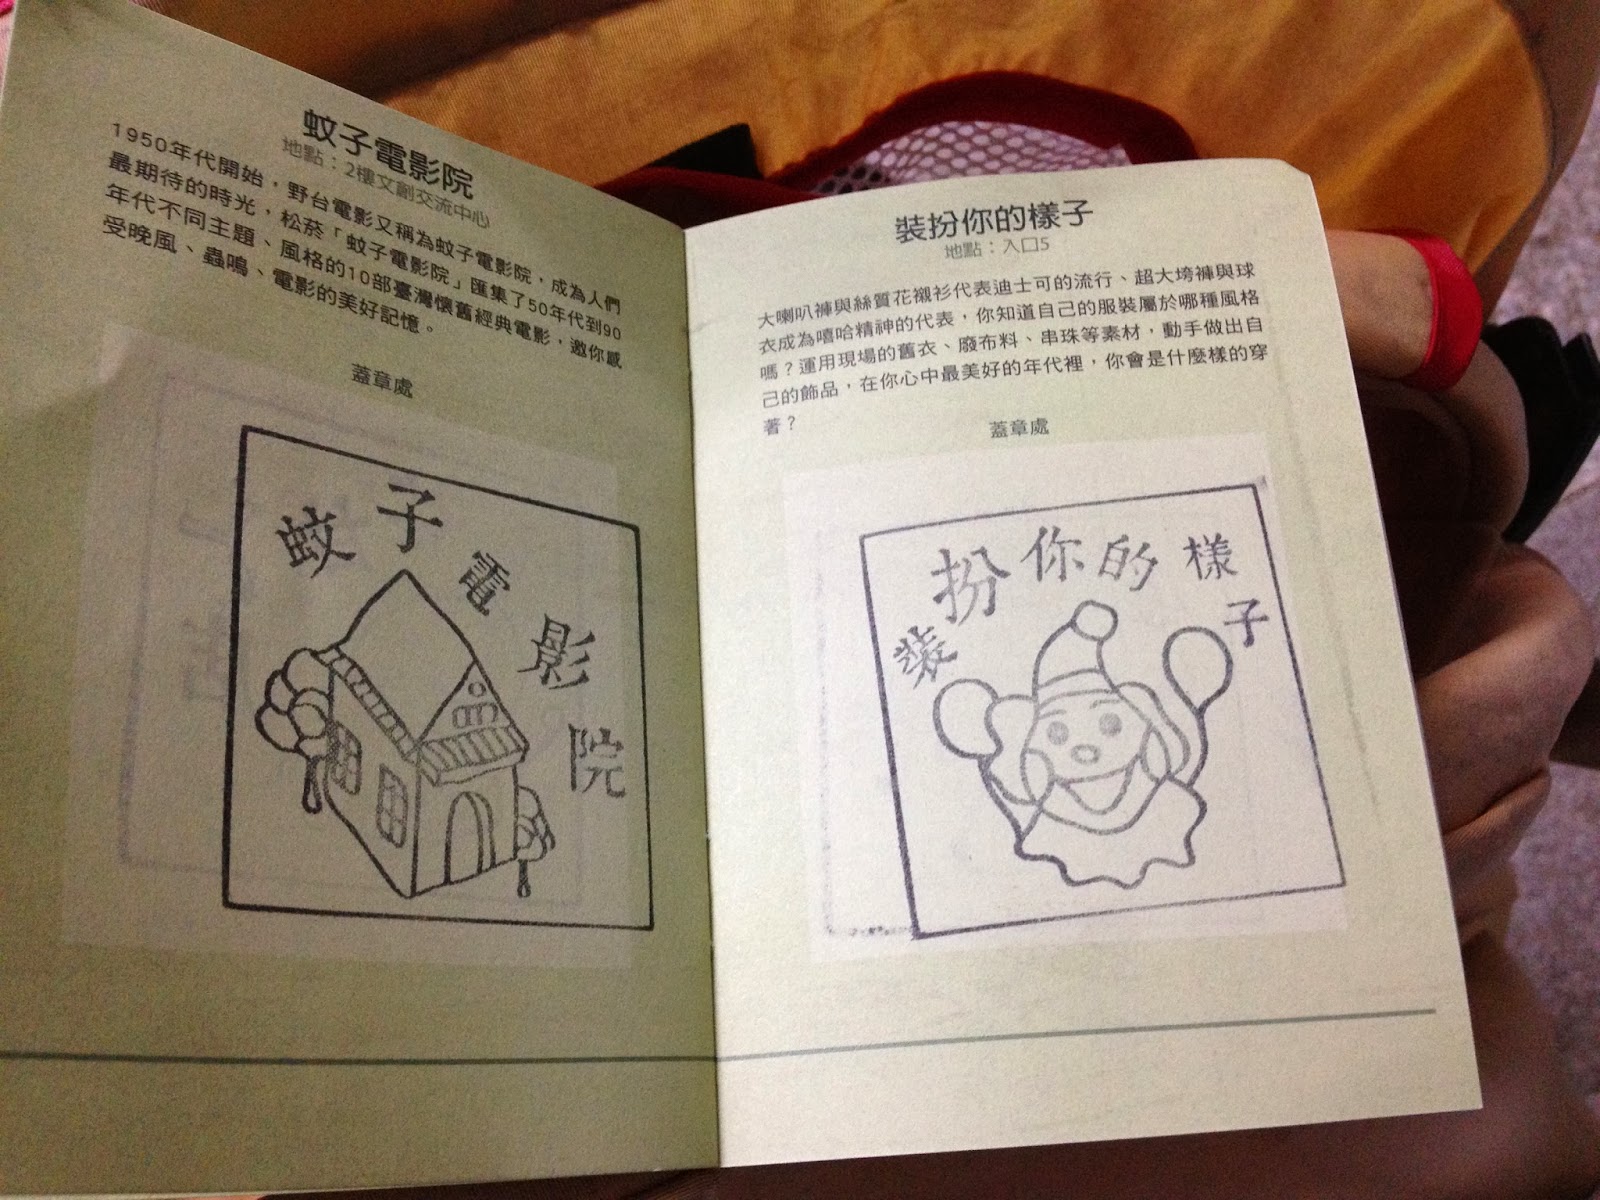 蚊子電影院
地點：2樓文創交流中心
1950年代開始，野台電影又稱為蚊子電影院，成為人們
最期待的時光，松菸「蚊子電影院」匯集了50年代到90
年代不同主題、風格的10部臺灣懷舊經典電影，邀你感
受晚風、蟲鳴、電影的美好記憶。
蓋章處
蚊子電影院
裝扮你的樣子
地點：入口5
大喇叭褲與絲質花襯衫代表迪士可的流行、超大垮褲與球
衣成為嘻哈精神的代表，你知道自己的服裝屬於哪種風格
嗎？運用現場的舊衣、廢布料、串珠等素材，動手做出自
己的飾品，在你心中最美好的年代裡，你會是什麼樣的穿
著？
蓋章處
裝扮你的樣子